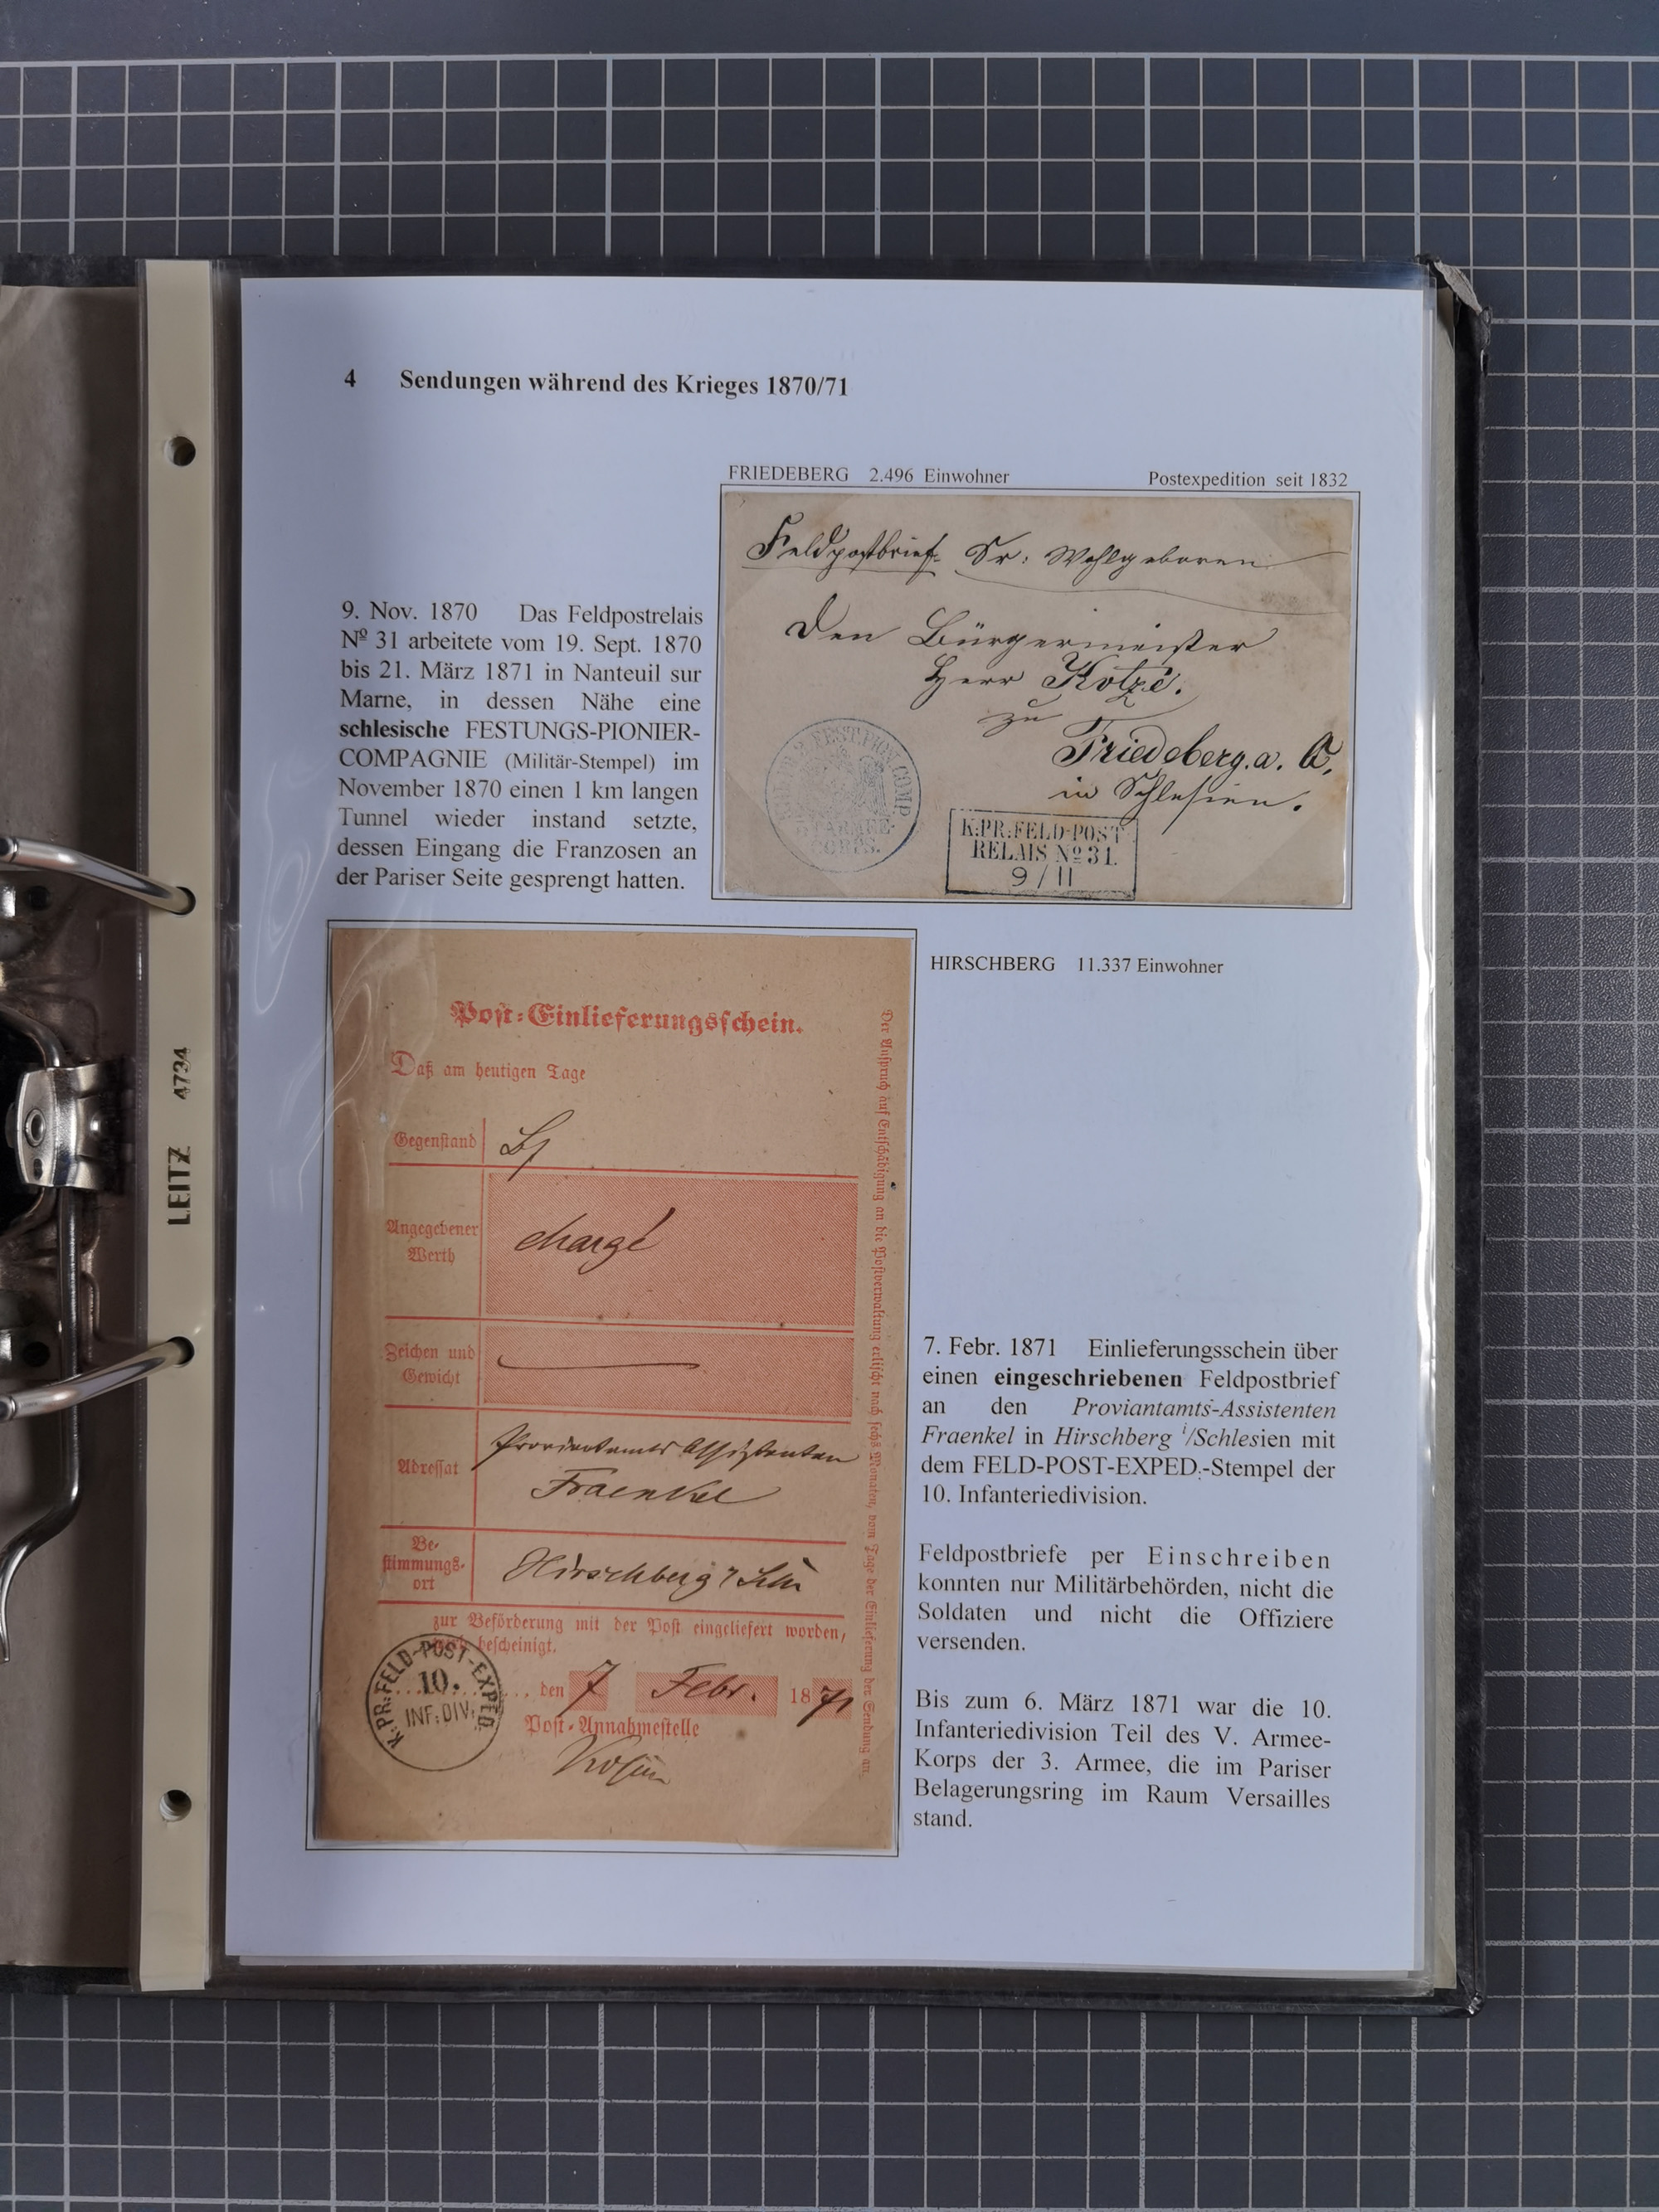 4 Sendungen während des Krieges 1870/71
FRIEDEBERG 2.496 Einwohner Postexpedition seit 1832
9. Nov. 1870 Das Feldpostrelais
Nº 31 arbeitete vom 19. Sept. 1870
bis 21. März 1871 in Nanteuil sur
Marne, in dessen Nähe eine
schlesische FESTUNGS-PIONIER-
COMPAGNIE (Militär-Stempel) im
November 1870 einen 1 km langen
Tunnel wieder instand setzte,
dessen Eingang die Franzosen an
der Pariser Seite gesprengt hatten.
Feldpostbrief. Sr: Wohlgeboren
Den Bürgermeister
Herr Kotzé.
zu
Friedeberg. a. Q.
in Schlesien.
2. FEST. PION. COMP.
ARMEE-
CORPS.
K:PR:FELD-POST
RELAIS Nº 31.
9/11
HIRSCHBERG 11.337 Einwohner
Post-Einlieferungsschein.
Daß am heutigen Tage
Gegenstand
Angegebener
Werth
chargé
Zeichen und
Gewicht
Adressat
Proviantamts Assistenten
Fraenkel
Be-
stimmungs-
ort
Hirschberg
zur Beförderung mit der Post eingeliefert worden,
bescheinigt.
K:PR:FELD-POST-EXPED.
10.
INF:DIV:
den 7 Febr. 1871
Post-Annahmestelle
Der Anspruch auf Entschädigung an die Postverwaltung erlischt nach sechs Monaten, vom Tage der Einlieferung der Sendung an.
7. Febr. 1871 Einlieferungsschein über
einen eingeschriebenen Feldpostbrief
an den Proviantamts-Assistenten
Fraenkel in Hirschberg i/Schlesien mit
dem FELD-POST-EXPED.-Stempel der
10. Infanteriedivision.
Feldpostbriefe per Einschreiben
konnten nur Militärbehörden, nicht die
Soldaten und nicht die Offiziere
versenden.
Bis zum 6. März 1871 war die 10.
Infanteriedivision Teil des V. Armee-
Korps der 3. Armee, die im Pariser
Belagerungsring im Raum Versailles
stand.
LEITZ 4734